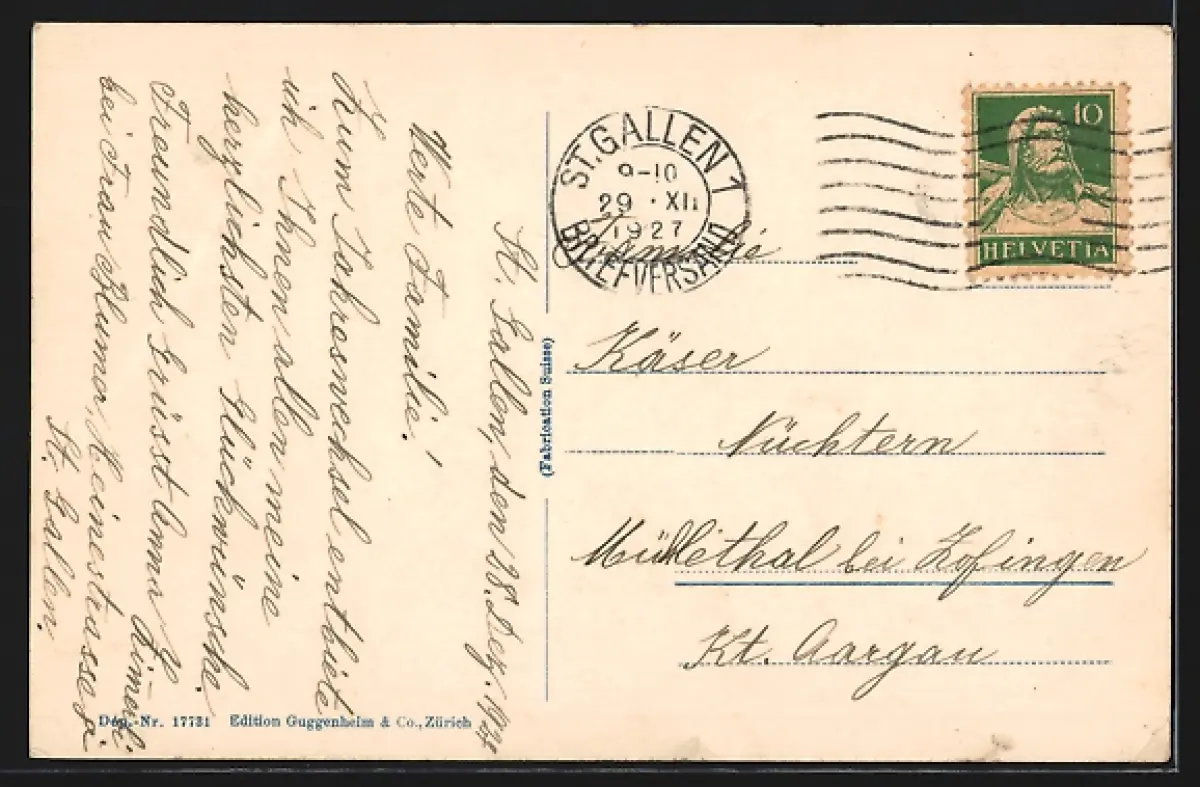 St. Gallen, den 28. Dez. 1927
Werte Familie!
Zum Jahreswechsel entbiete
ich Ihnen allen meine
herzlichsten Glückwünsche.
Freundlich Grüsst Anna
bei Frau Blumer, Heinestrasse
St. Gallen.
Dép.-Nr. 17731 Edition Guggenheim & Co., Zürich
(Fabrication Suisse)
ST. GALLEN 1
9-10
29 · XII
1927
BRIEFVERSAND
10
HELVETIA
Familie
Käser
Nüchtern
Mühlethal bei Zofingen
Kt. Aargau